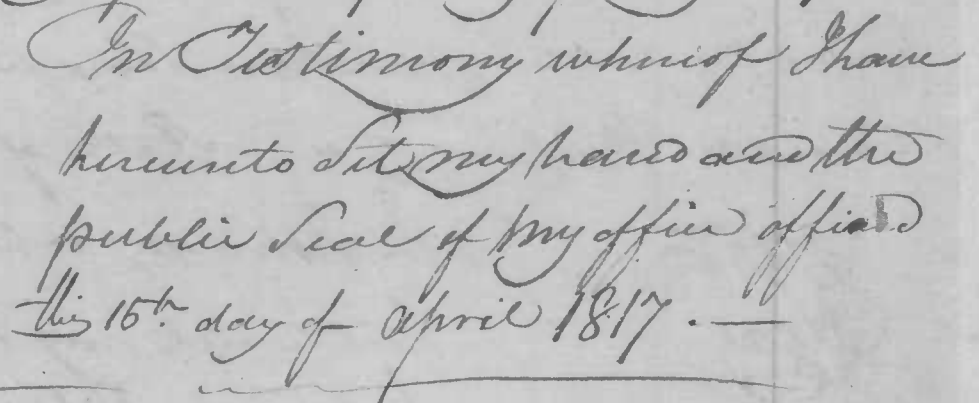 In Testimony whereof I have
hereunto Set my hand and the
public Seal of my office affixed
this 15th day of April 1817. —